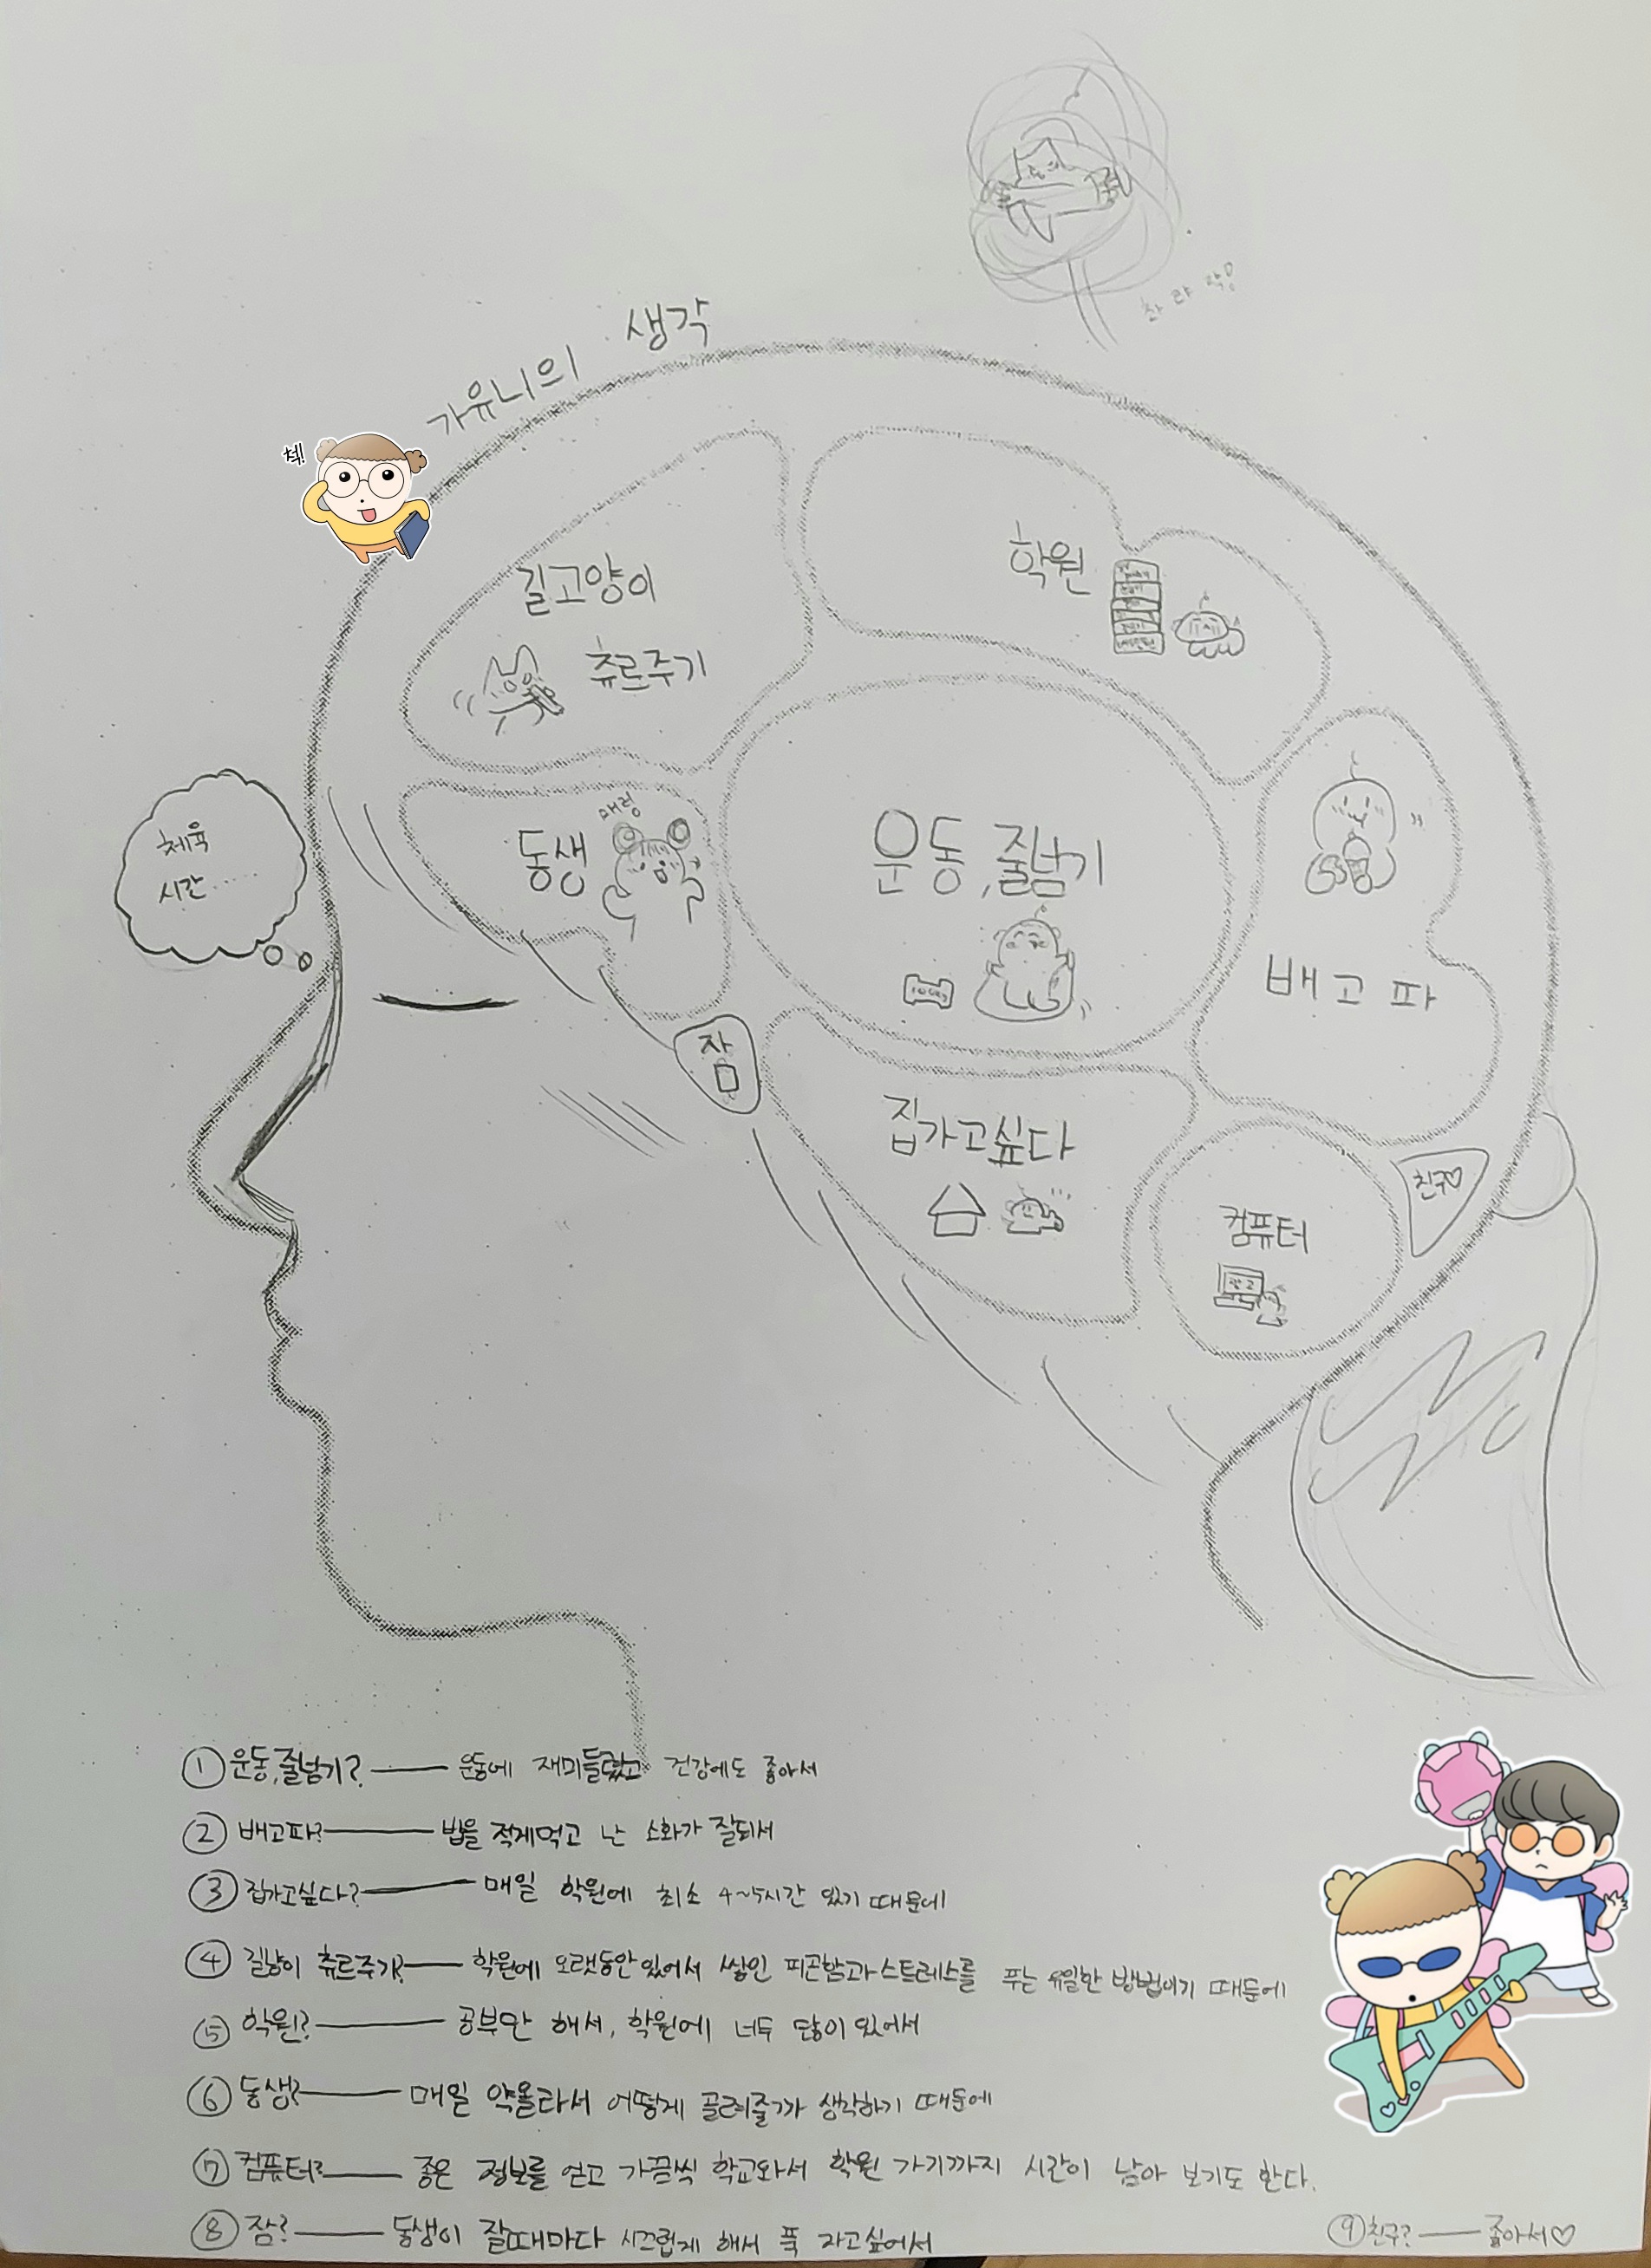 가유니의 생각
척!
촤라락!
길고양이
츄르주기
학원
동생
매렁
운동, 줄넘기
100kg
배고파
체육
시간......
잠
집가고싶다
컴퓨터
친구♡
① 운동,줄넘기? 운동에 재미들렸고 건강에도 좋아서
② 배고파? 밥을 적게먹고 난 소화가 잘되서
③ 집가고싶다? 매일 학원에 최소 4~5시간 있기 때문에
④ 길냥이 츄르주기? 학원에 오랫동안있어서 쌓인 피곤함과 스트레스를 푸는 유일한 방법이기 때문에
⑤ 학원? 공부만 해서, 학원에 너무 많이 있어서
⑥ 동생? 매일 약올라서 어떻게 골려줄까 생각하기 때문에
⑦ 컴퓨터? 좋은 정보를 얻고 가끔씩 학교와서 학원 가기까지 시간이 남아 보기도 한다.
⑧ 잠? 동생이 잘때마다 시끄럽게 해서 푹 자고싶어서
⑨ 친구? 좋아서♡